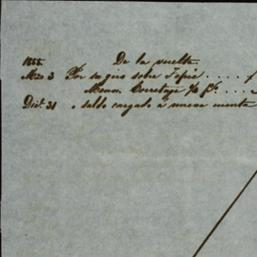 1855. De la vuelta.
Mzo 3 Por su giro sobre Tepic . . . . f
Menos Corretaje . . .
Dic. 31 " saldo cargado á nueva cuenta